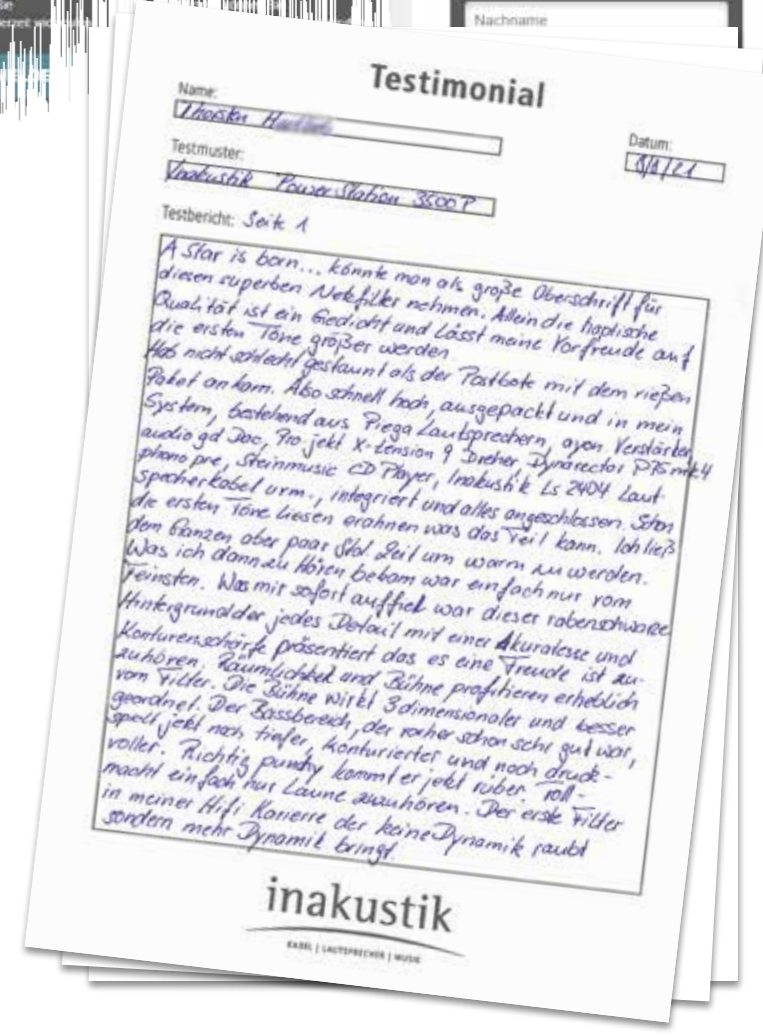 Nachname
Testimonial
Name:
Thorsten
Datum:
Testmuster:
Inakustik PowerStation 3500P
Testbericht: Seite 1
A Star is born... könnte man als große Überschrift für
diesen superben Netzfilter nehmen. Allein die haptische
Qualität ist ein Gedicht und Lässt meine Vorfreude auf
die ersten Töne größer werden.
Hab nicht schlecht gestaunt als der Postbote mit dem rießen
Paket ankam. Also schnell hoch, ausgepackt und in mein
System, bestehend aus Piega Lautsprechern, ayon Verstärker,
audio gd Dac, Pro-jekt X-tension 9 Dreher, Dynavector P75 mk4
phono pre, Steinmusic CD Player, Inakustik Ls 2404 Laut-
sprecherkabel usw., integriert und alles angeschlossen. Schon
die ersten Töne liesen erahnen was das Teil kann. Ich ließ
dem Ganzen aber paar Std. Zeit um warm zu werden.
Was ich dann zu Hören bekam war einfach nur vom
Feinsten. Was mir sofort auffiel war dieser rabenschwarze
Hintergrund der jedes Detail mit einer Akuratesse und
Konturenschärfe präsentiert das es eine Freude ist zu-
zuhören. Räumlichkeit und Bühne profitieren erheblich
vom Filter. Die Bühne wirkt 3dimensionaler und besser
geordnet. Der Bassbereich, der vorher schon sehr gut war,
spielt jetzt noch tiefer, konturierter und noch druck-
voller. Richtig punchy kommt er jetzt rüber. Toll-
macht einfach nur Laune zuzuhören. Der erste Filter
in meiner Hifi Karierre der keine Dynamik raubt
sondern mehr Dynamik bringt.
inakustik
KABEL | LAUTSPRECHER | MUSIK